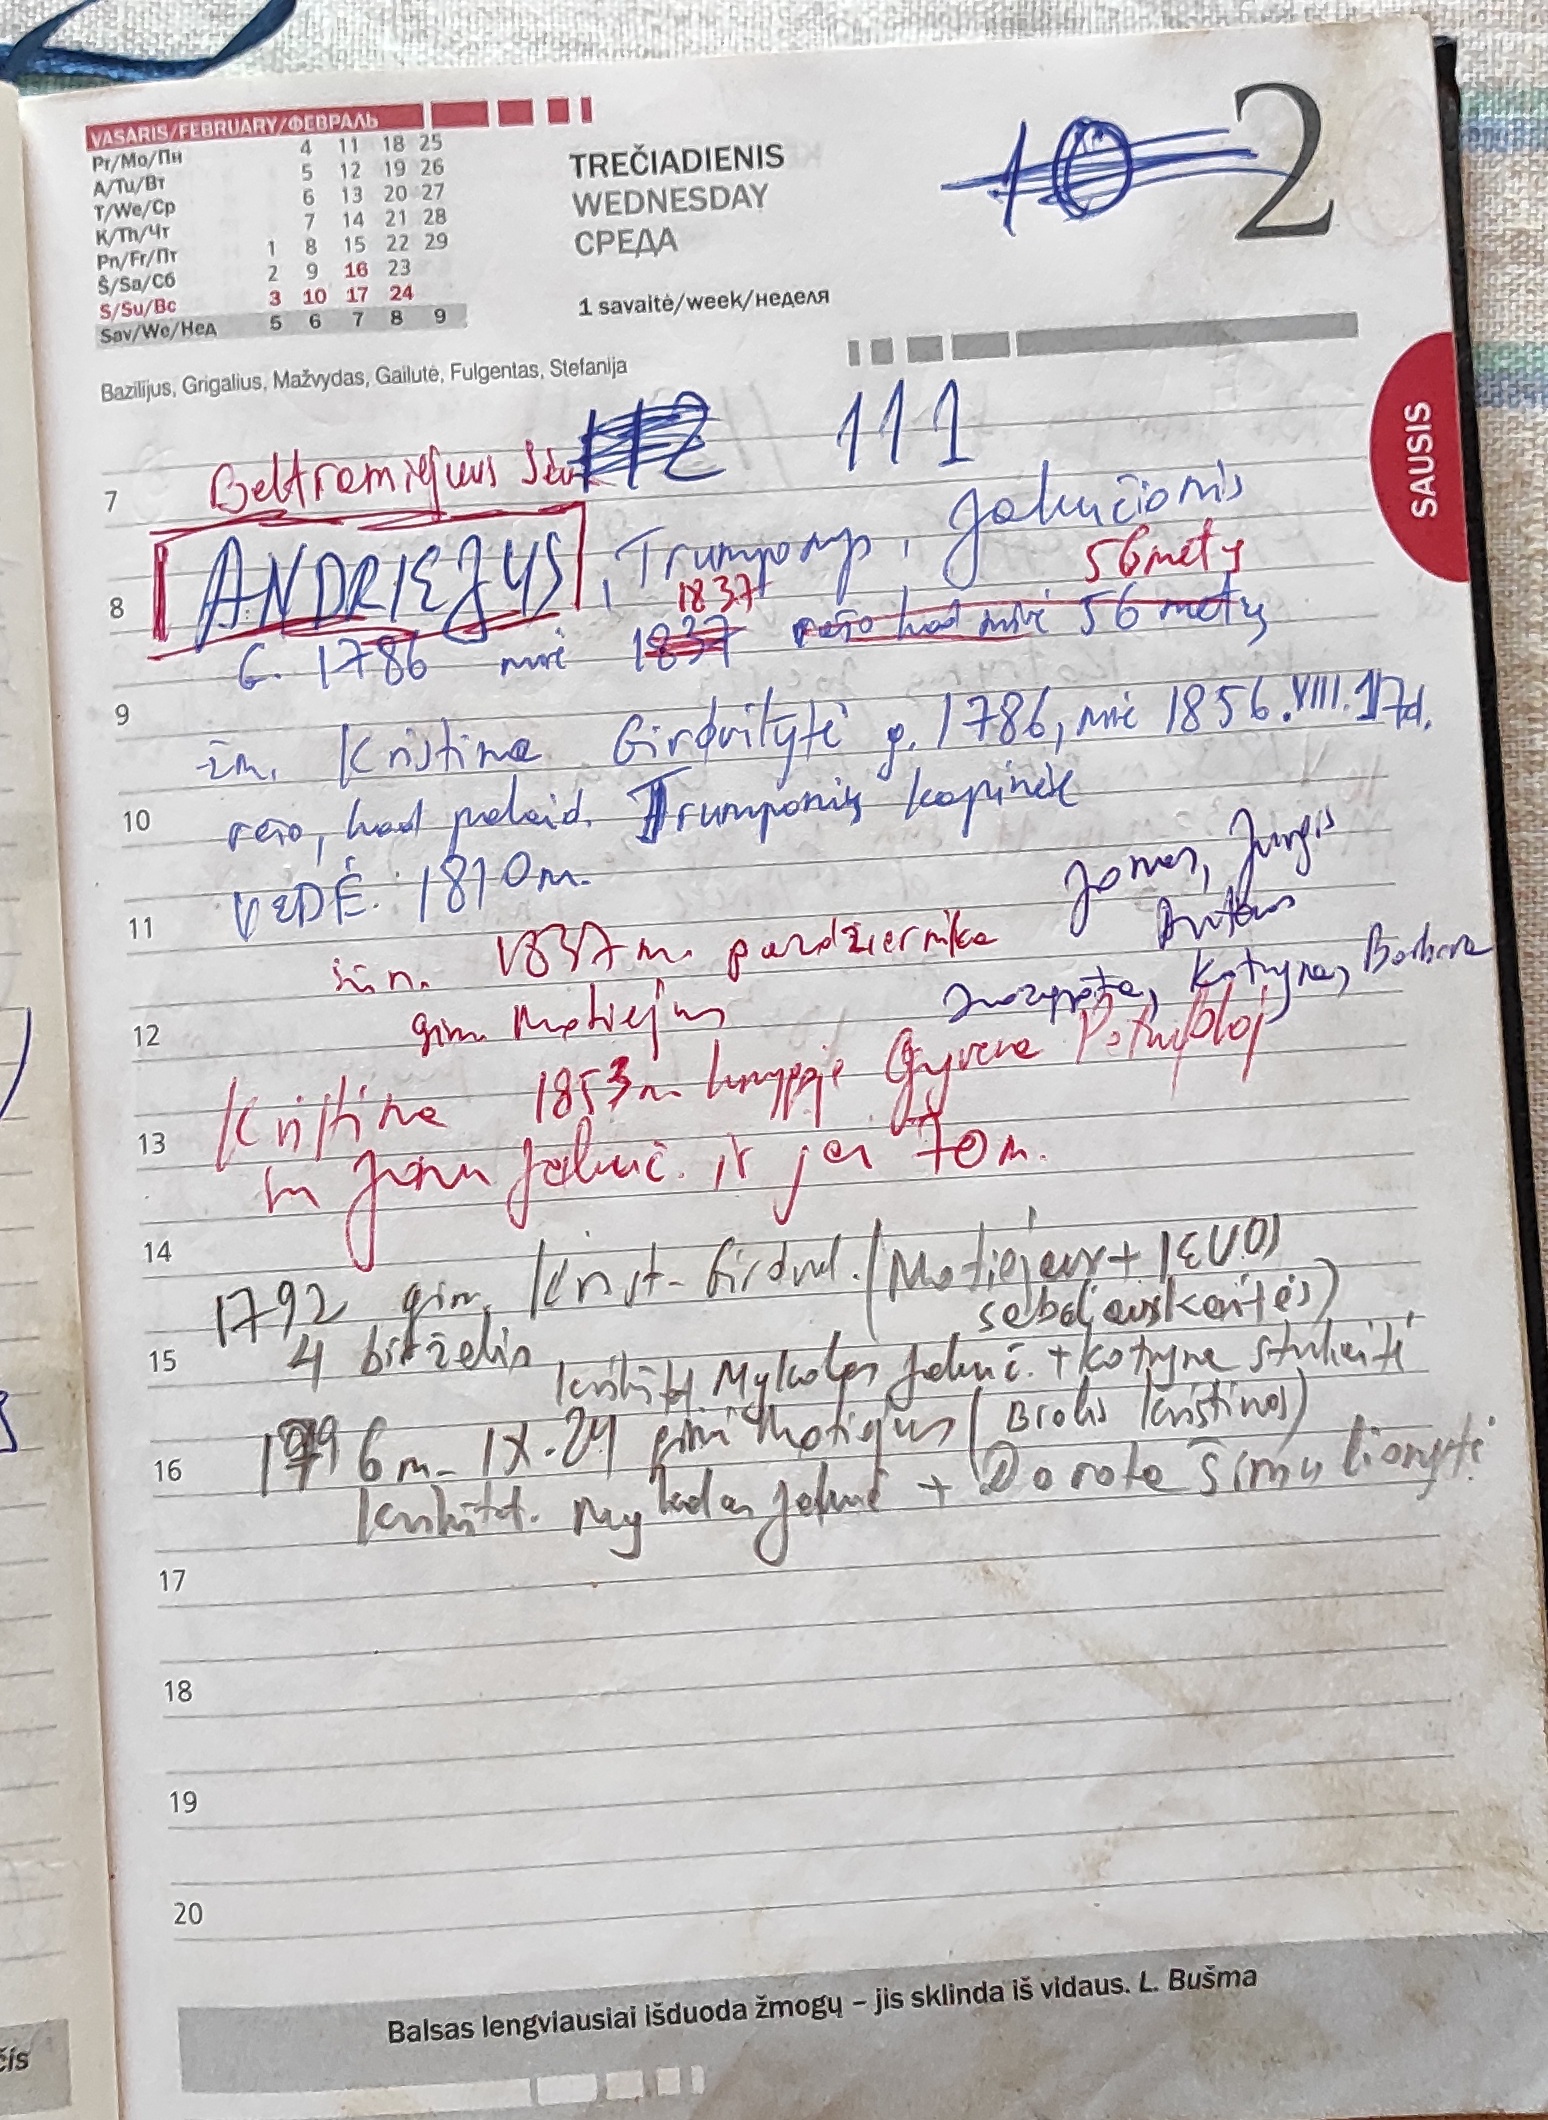 VASARIS/FEBRUARY/ФЕВРАЛЬ
Pr/Mo/Пн 4 11 18 25
A/Tu/Вт 5 12 19 26
T/We/Ср 6 13 20 27
K/Th/Чт 7 14 21 28
Pn/Fr/Пт 1 8 15 22 29
Š/Sa/Сб 2 9 16 23
S/Su/Вс 3 10 17 24
Sav/We/Нед 5 6 7 8 9
TREČIADIENIS
WEDNESDAY
СРЕДА
1 savaitė/week/неделя
10 2
Bazilijus, Grigalius, Mažvydas, Gailutė, Fulgentas, Stefanija
SAUSIS
112 111
7 Beltramiejus
ANDRIEJUS, Trumponys, Jakučionis
8 1837 56 metų
G. 1786 mirė 1837 rašo kad mirė 56 metų
9 žm. Kristina Girdvilytė g. 1786, mirė 1856.VIII.17d.
10 rašo, kad palaid. Trumponių kapinėse
VEDĖ. 1810m.
Jonas, Jurgis
11 Antanas
sūn. 1837m. pazdziernika
Juozapota, Kotryna, Barbora
12 gim. Motiejus
Kristina 1853m. knygoje Gyvena
13 su Jonu Jakuč. ir jai 70 m.
14
1792 gim. Krist. Girdvil. (Motiejaus + IEVOS
4 birželio
15 krikštat. Mykolas Jakuč. + Kotryna
1796m. IX.24 gimė Motiejus (Brolis Kristinos)
16 krikštat. Mykolas Jakuč + Dorota Šimulionytė
17
18
19
20
Balsas lengviausiai išduoda žmogų – jis sklinda iš vidaus. L. Bušma